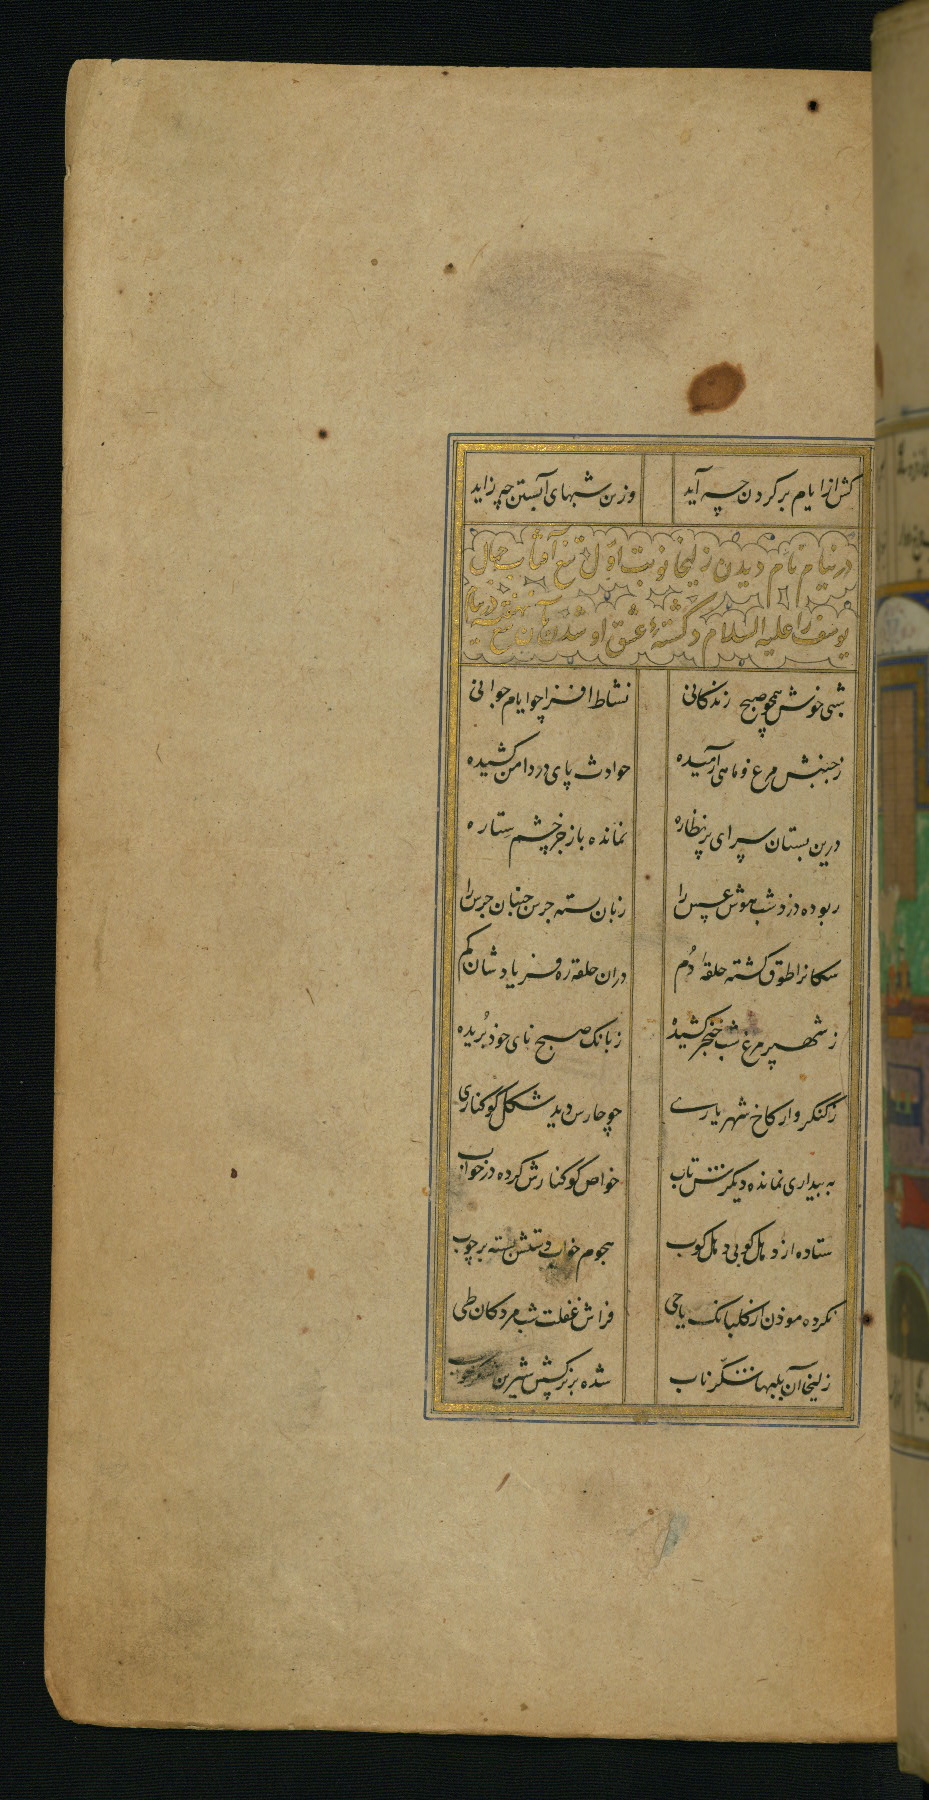 کش از ایام بر گردن چه آید وزین شبهای آبستن چه زاید
در نیام نام دیدن زلیخا نوبت اول تیغ آفتاب جمال
یوسف را علیه السلام و کشتهٔ عشق او شدن آن تیغ نهفته در نیام
شبی خوش همچو صبح زندکانی نشاط افزا چو ایام جوانی
ز جنبش مرغ و ماهی آرمیده حوادث پای در دامن کشیده
درین بستان سرای پر نظاره نمانده باز جز چشم ستاره
ربوده دزد شب هوش عسس را زبان بسته جرس جنبان جرس را
سکانرا طوق کشته حلقهٔ دم دران حلقه ره فریادشان کم
ز شهپر مرغ شب خنجر کشیده ز بانک صبح نای خود بریده
ز کنکر دار کاخ شهریاری چو حارس دید شکل کوکناری
به بیداری نمانده دیکرش تاب خواص کوکنارش کرده در خواب
ستاده از دهل کوبی دهل کوب هجوم خواب دستش بسته بر چوب
نکرده موذن از کلبانک یا حی فراش غفلت شب مردکان طی
زلیخا آن بلبها شکر ناب شده بر نرکسش شیرین شکر خواب